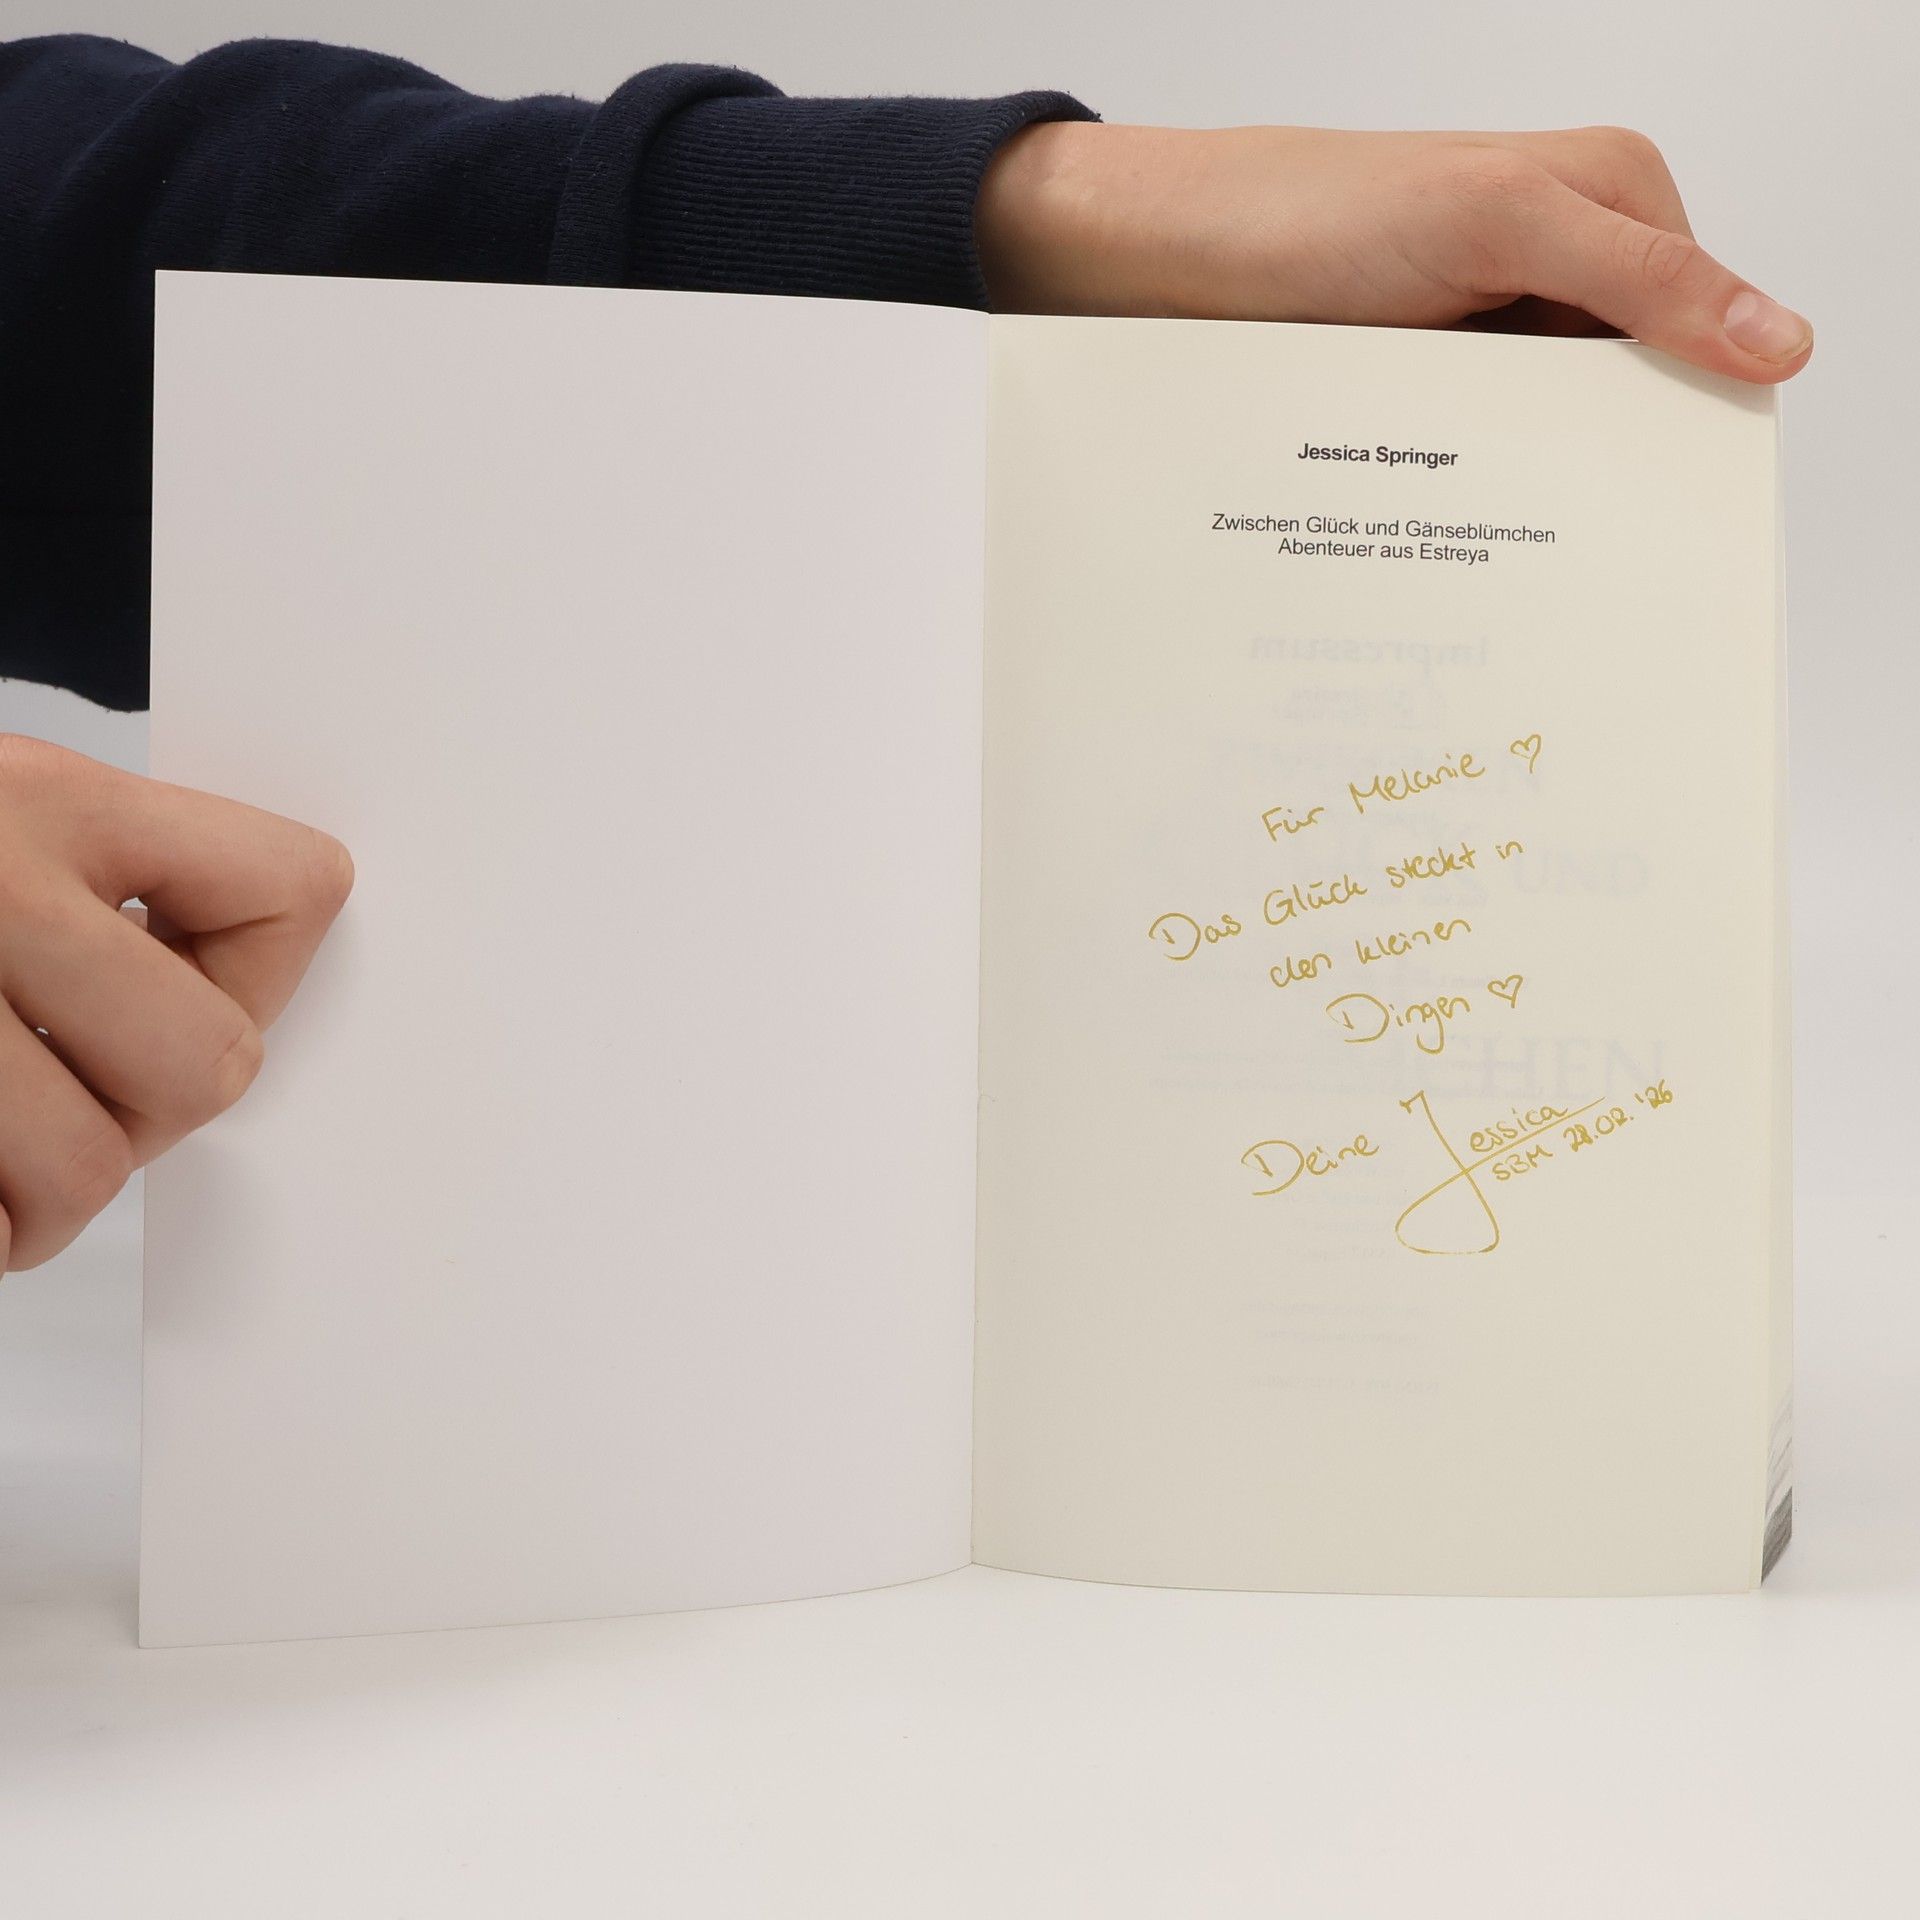 Jessica Springer
Zwischen Glück und Gänseblümchen
Abenteuer aus Estreya
Für Melanie ♡
Das Glück steckt in
den kleinen
Dingen ♡
Deine Jessica
SBM 28.02.'26